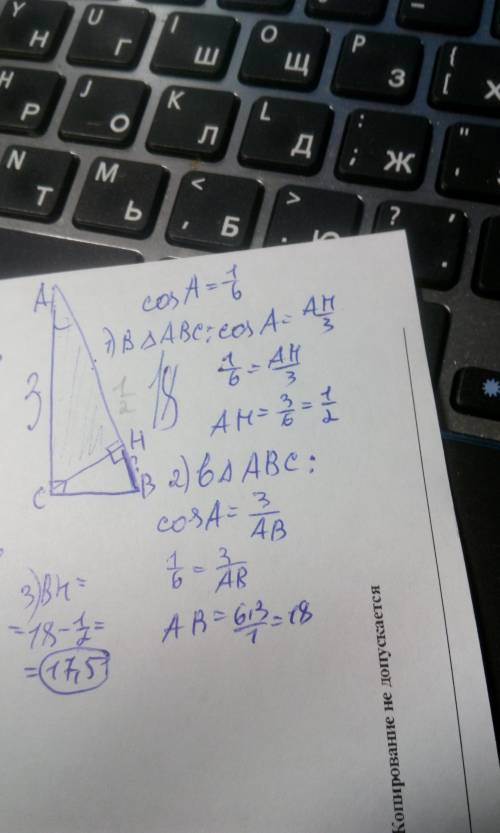 Y Н
U Г
I Ш
O Щ
P З
{ [ Х
Н Р
J О
K Л
L Д
: ; Ж
"
N Т
M Ь
< , Б
> .
? .
A
3
C
H
B
1/2
18
cosA = 1/6
1) В △ ABC: cosA = AH/3
1/6 = AH/3
AH = 3/6 = 1/2
2) в △ ABC:
cosA = 3/AB
1/6 = 3/AB
AB = 6·3/1 = 18
3) BH =
= 18 - 1/2 =
= 17,5
Копирование не допускается